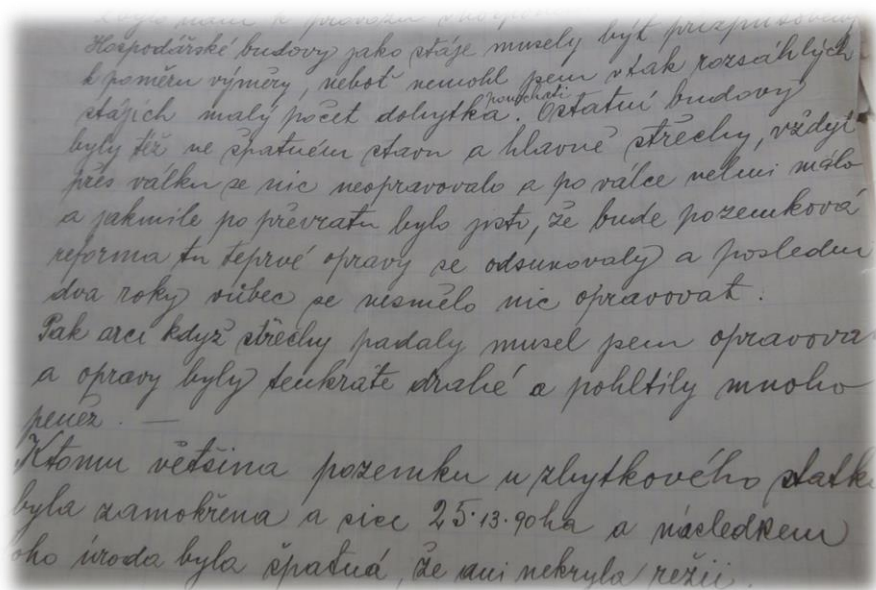 bylo nám k provozu
Hospodářské budovy jako stáje musely být přizpůsobeny
k poměru výměry, neboť nemohl jsem v tak rozsáhlých
stájích malý počet dobytka ponechati. Ostatní budovy
byly též ve špatném stavu a hlavně střechy, vždyť
přes válku se nic neopravovalo a po válce velmi málo
a jakmile po převratu bylo jisto, že bude pozemková
reforma tu teprvé opravy se odsunovaly a poslední
dva roky vůbec se nesmělo nic opravovat.
Pak arci když střechy padaly musel jsem opravova
a opravy byly tenkráte drahé a pohltily mnoho
peněz. —
Ktomu většina pozemku u zbytkového statku
byla zamokřena a sice 25·13·90ha a následkem
oho úroda byla špatná, že ani nekryla režii.